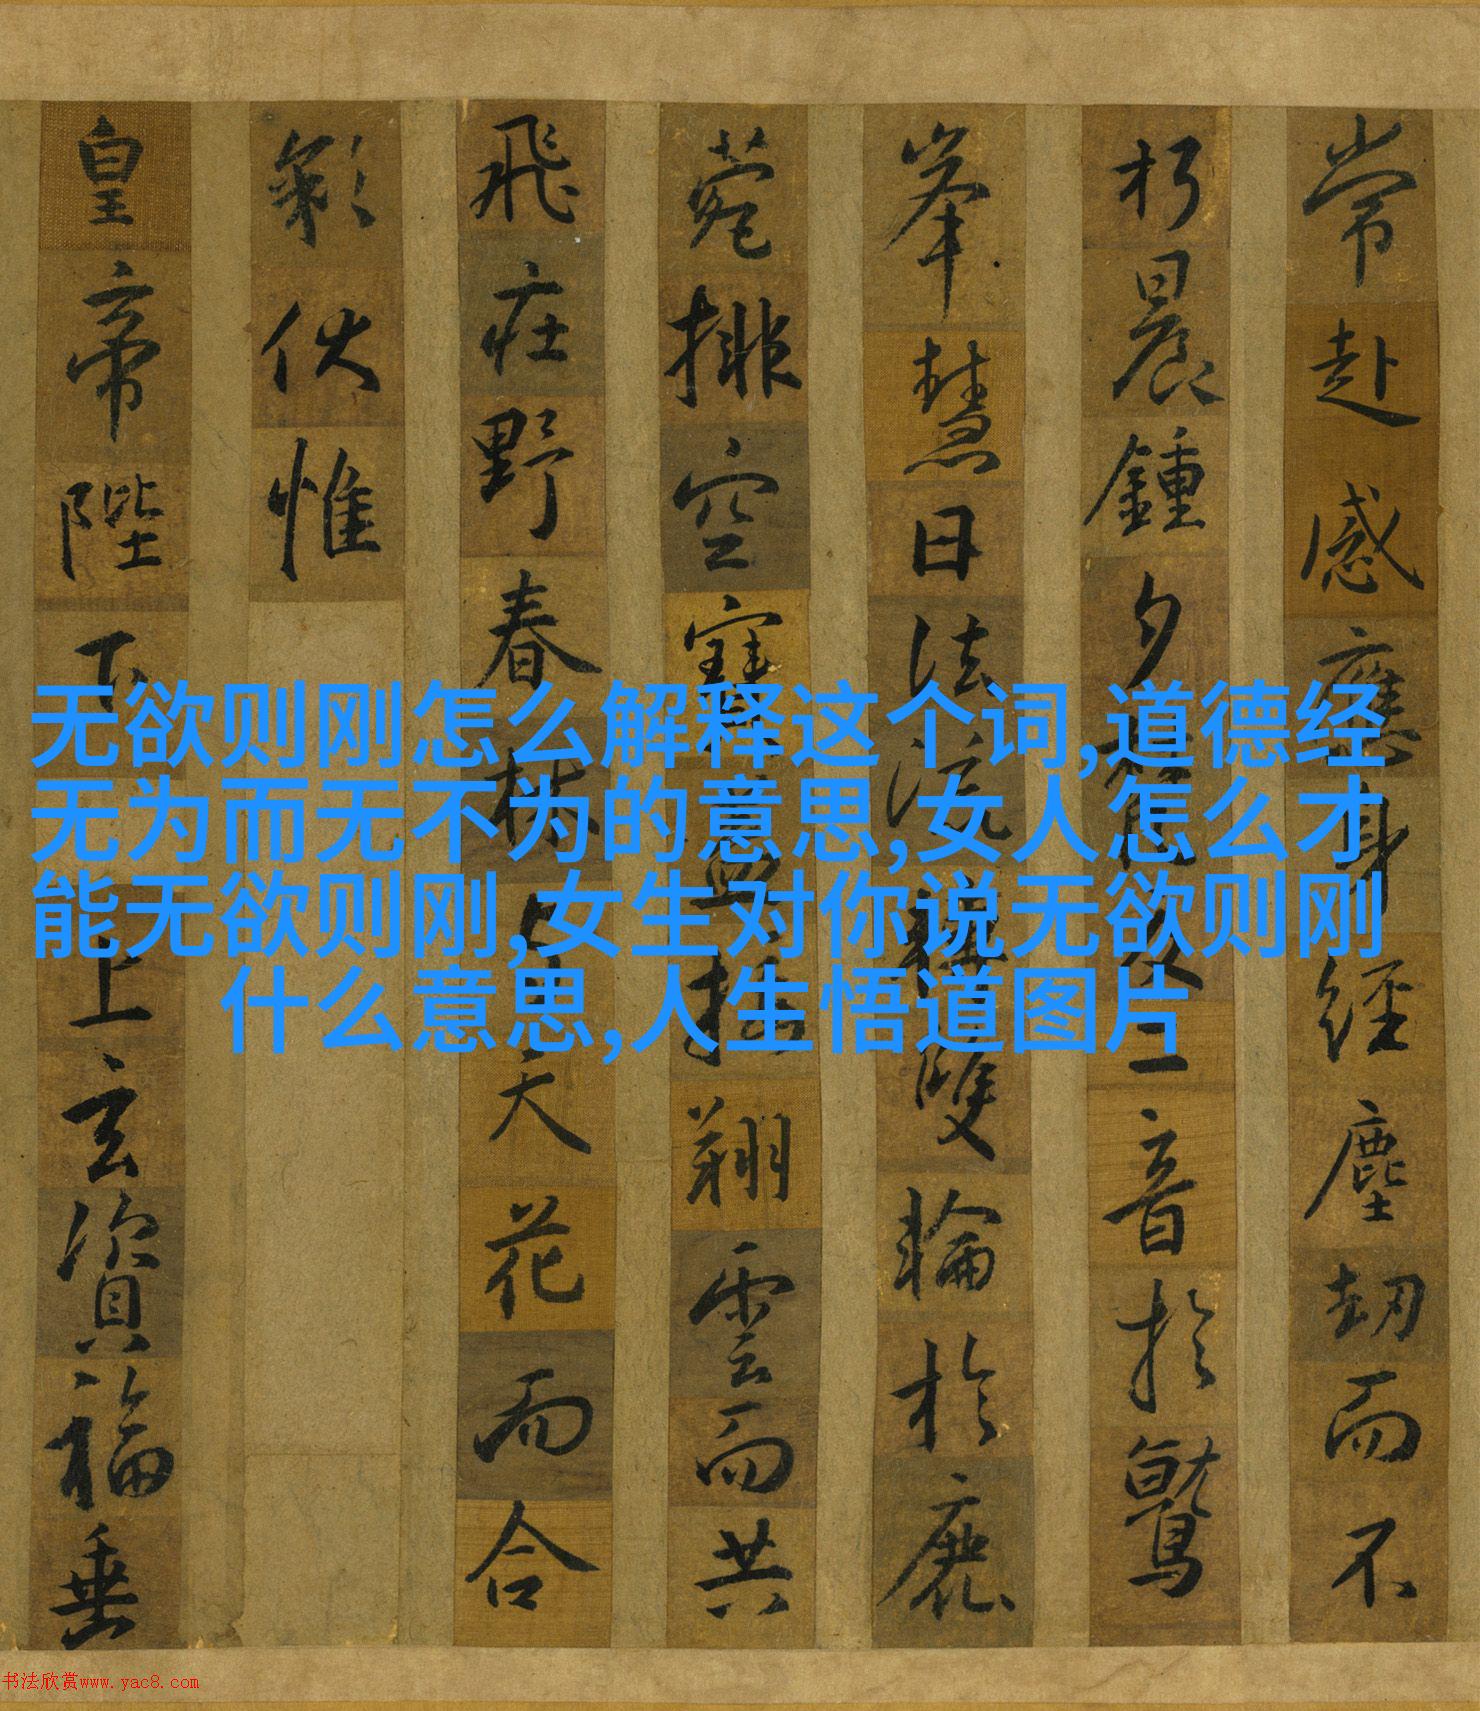 常赴感應身經塵劫而不
朽晨鍾夕梵交二音於鷲
峯慧日法流轉雙輪於鹿
菀排空寶蓋接翔雲而共
飛莊野春林與天花而合
彩伏惟
皇帝陛下上玄資福垂
无欲则刚怎么解释这个词,道德经
无为而无不为的意思,女人怎么才
能无欲则刚,女生对你说无欲则刚
什么意思,人生悟道图片
书法欣赏www.yac8.com